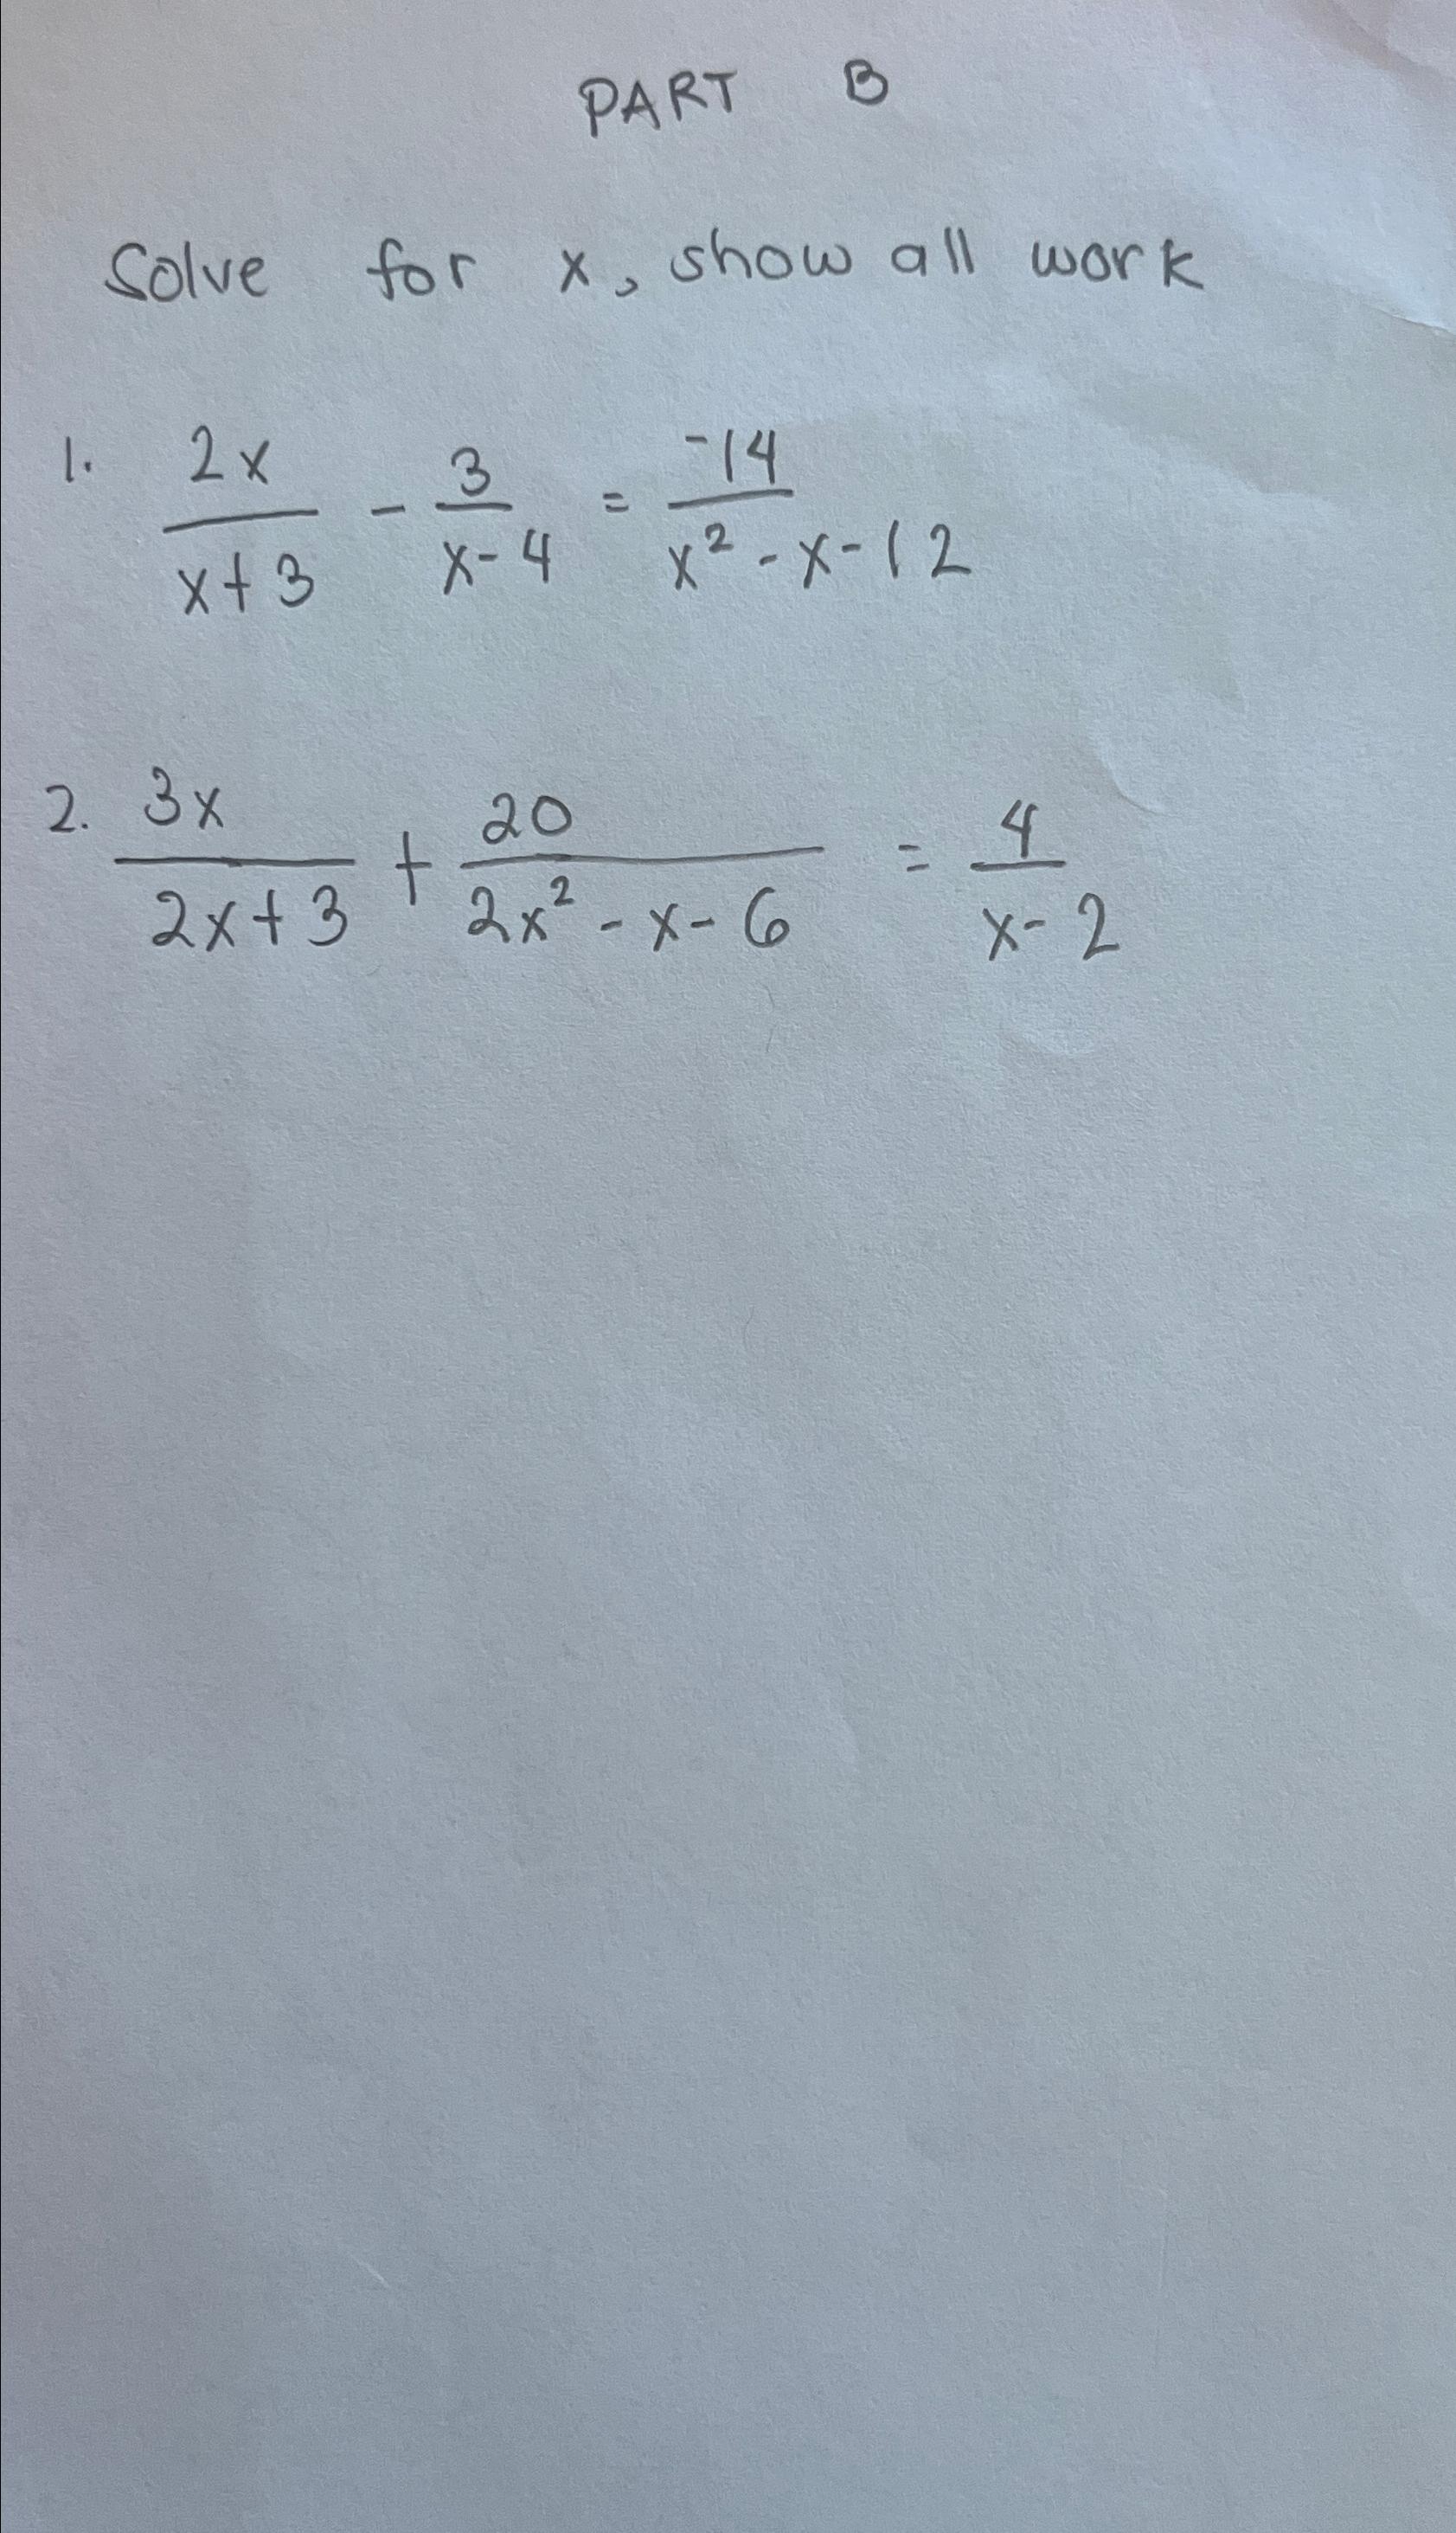 PART B
Solve for x, show all work
1. 2x/(x+3) - 3/(x-4) = -14/(x²-x-12)
2. 3x/(2x+3) + 20/(2x²-x-6) = 4/(x-2)